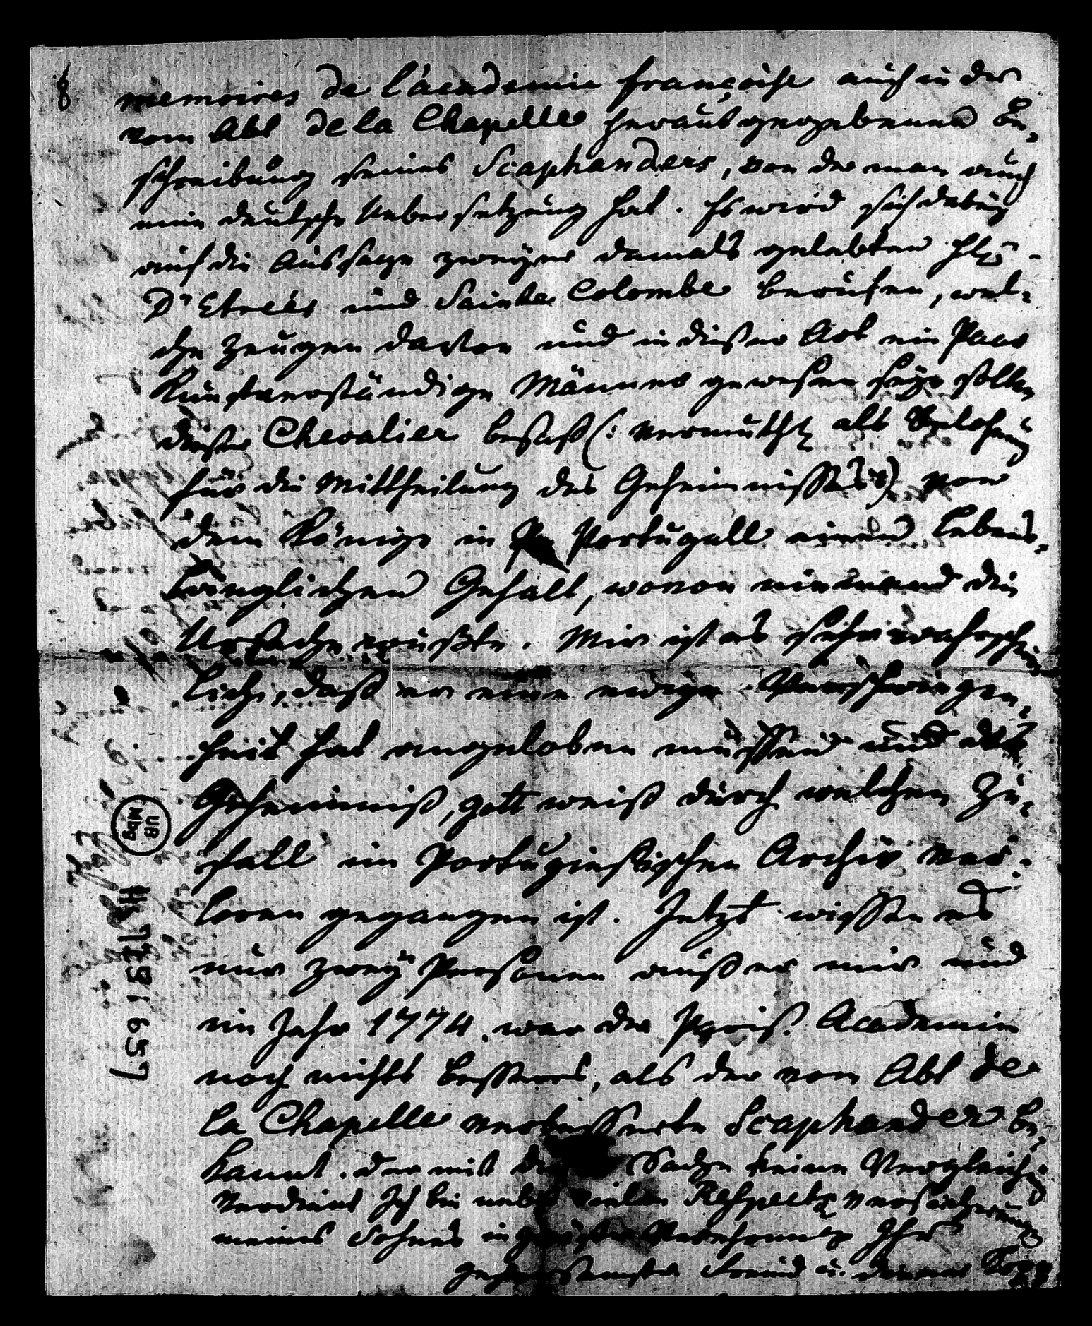 8
memoires de l'academie françoise auch in der
vom Abt de la Chapelle herausgegebenen Be-
schreibung seines Scaphanders, von der man auch
eine deutsche Uebersetzung hat. Es wird sich dabey
auf die Aussage zweyer damals gelebten
D'Etrées und Sainte Colombe berufen, wel-
che Zeugen davon und in dieser Art ein Paar
Kunstverständige Männer gewesen seyn sollen
dieser Chevalier besaß (: vermuthl als Belohnung
für die Mittheilung des Geheimnisses :) von
dem Könige in Portugall einen lebens-
länglichen Gehalt, wovon niemand die
Ursache wußte. Mir ist es sehr wahrschein
lich, daß er eine ewige Verschwiegen-
heit hat angeloben müssen und das
Geheimniß, gott weiß durch welchen Zu-
fall im Portugiesischen Archiv ver-
loren gegangen ist. Jetzt wissen es
nur zwey Personen außer mir und
im Jahr 1774. war der Pariß. Academie
noch nichts bessers, als der vom Abt de
la Chapelle verbesserte Scaphander be-
kannt. der mit Sache keine Vergleichung
verdient Ich bin nebst vielen Respects Versicherung
meines Sohnes in Verehrung Ihr
gehorsamster Freund u. Diener
UB Mbg
Hs 75 1657